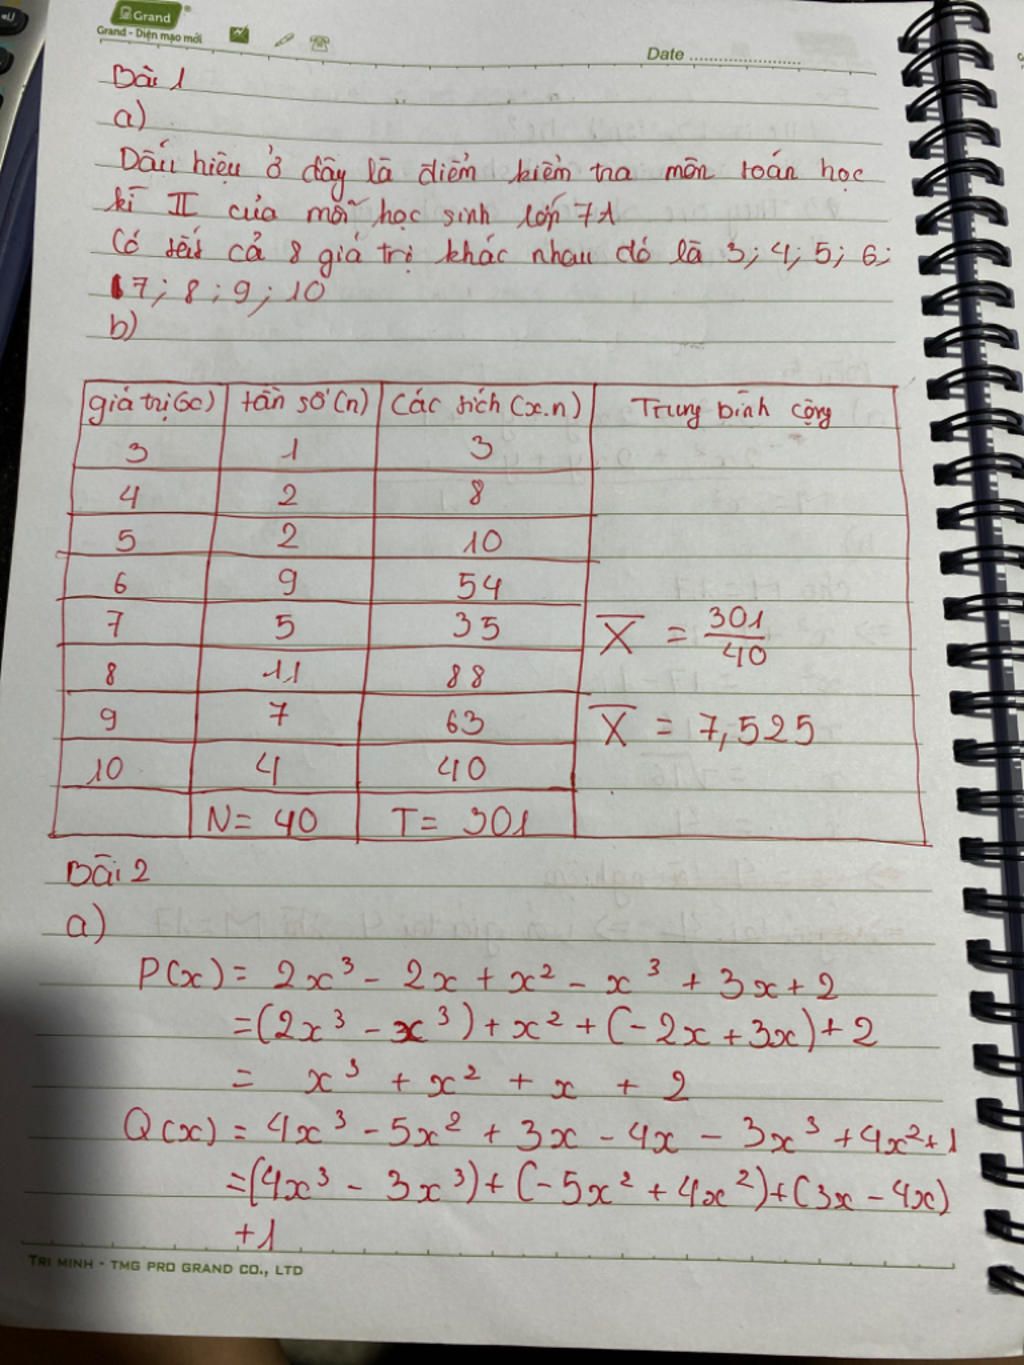 Grand
Grand - Diện mạo mới
Date
Bài 1
a)
Dấu hiệu ở đây là điểm kiểm tra môn toán học
kì II của mỗi học sinh lớp 7A
Có tất cả 8 giá trị khác nhau đó là 3; 4; 5; 6;
7; 8; 9; 10
b)
giá trị (x) tần số (n) Các tích (x.n) Trung bình cộng
3 1 3
4 2 8
5 2 10
6 9 54
7 5 35 X̄ = 301/40
8 11 88
9 7 63 X̄ = 7,525
10 4 40
N = 40 T = 301
Bài 2
a)
P(x) = 2x³ - 2x + x² - x³ + 3x + 2
= (2x³ - x³) + x² + (-2x + 3x) + 2
= x³ + x² + x + 2
Q(x) = 4x³ - 5x² + 3x - 4x - 3x³ + 4x² + 1
= (4x³ - 3x³) + (-5x² + 4x²) + (3x - 4x)
+ 1
TRI MINH - TMG PRO GRAND CO., LTD